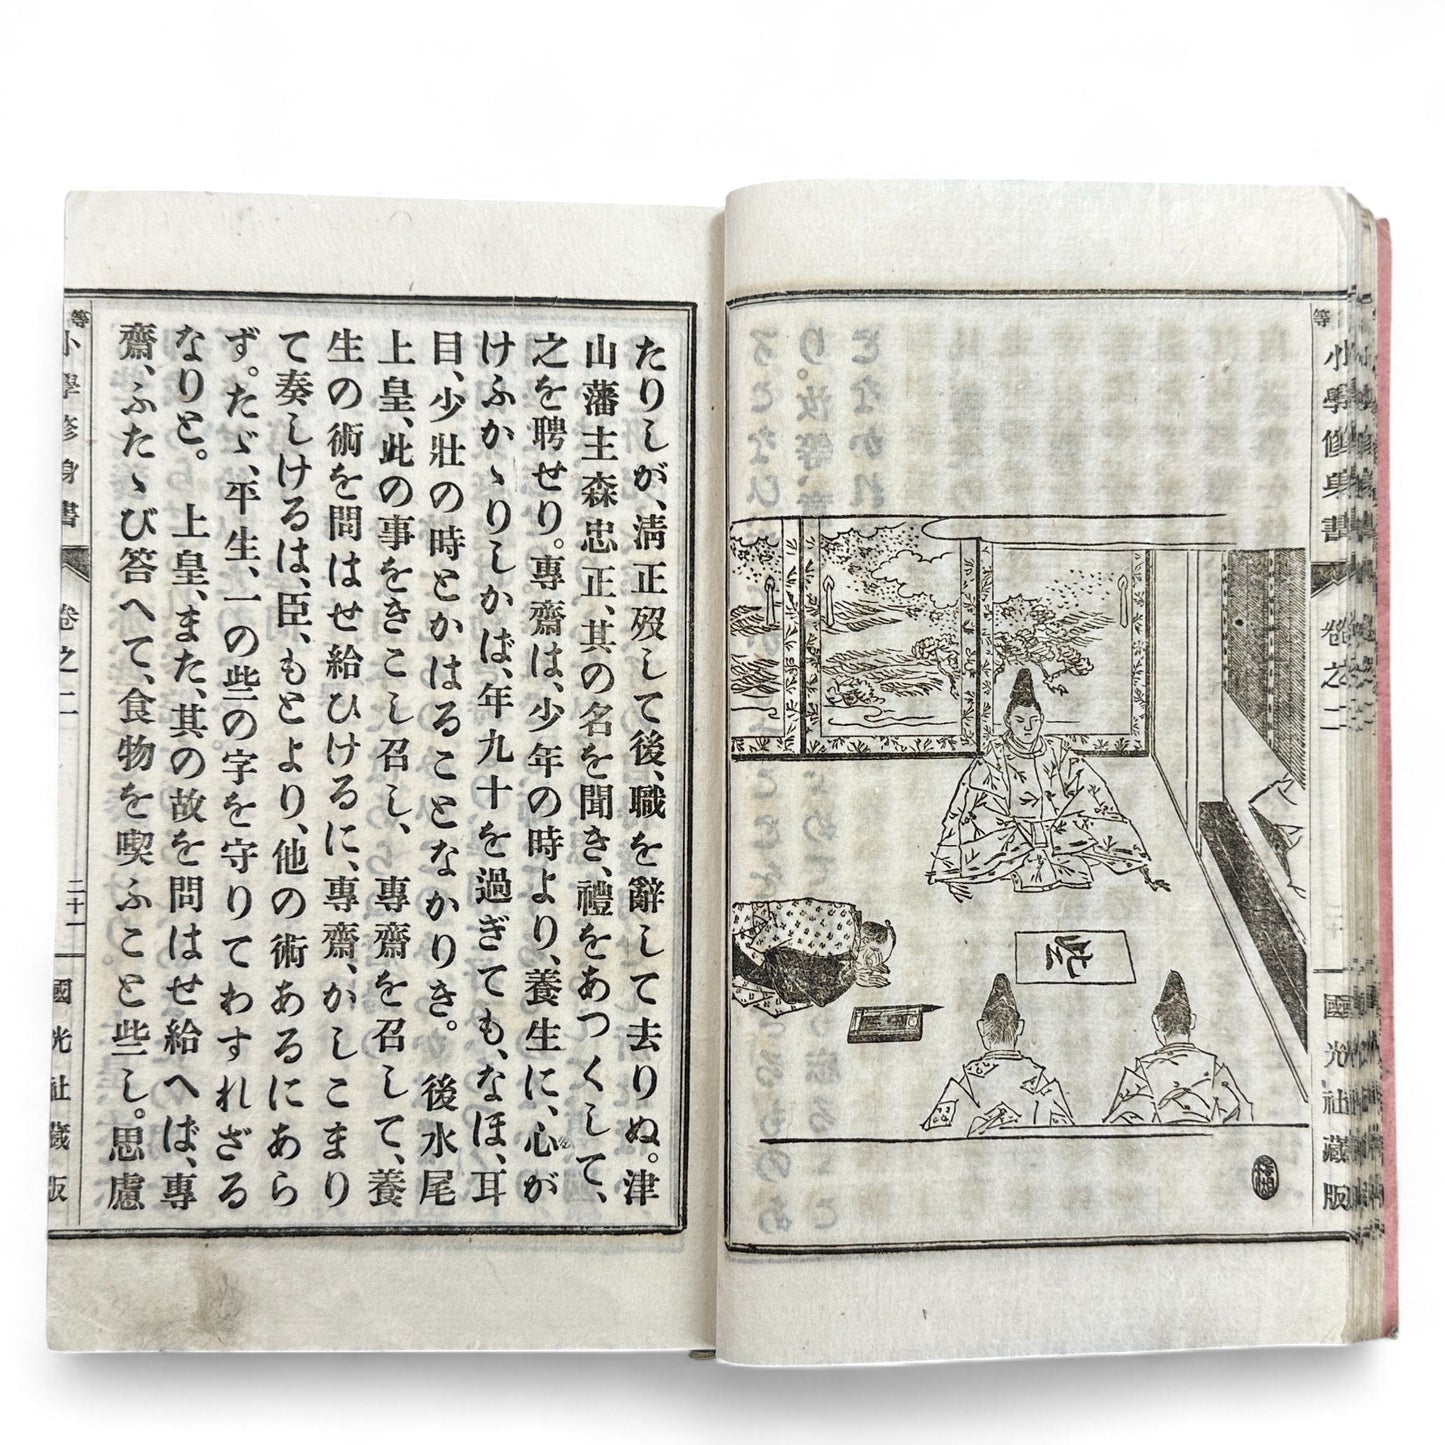 等
小學修身書
卷之二
二十
國光社藏版
些
たりしが、淸正歿して後、職を辭して去りぬ。津
山藩主森忠正、其の名を聞き、禮をあつくして、
之を聘せり。專齋は、少年の時より、養生に、心が
けふかゝりしかば、年九十を過ぎても、なほ、耳
目、少壯の時とかはることなかりき。後水尾
上皇、此の事をきこし召し、專齋を召して、養
生の術を問はせ給ひけるに、專齋、かしこまり
て奏しけるは、臣、もとより、他の術あるにあら
ず。たゞ、平生、一の些の字を守りてわすれざる
なりと。上皇、また、其の故を問はせ給へば、專
齋、ふたゝび答へて、食物を喫ふこと些し。思慮
等
小學修身書
卷之二
二十一
國光社藏版